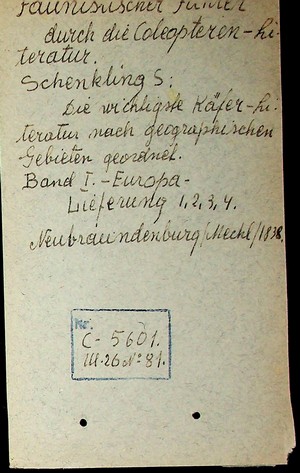 Faunistischer Führer
durch die Coleopteren-Li-
teratur.
Schenkling S:
Die wichtigste Käfer-Li-
teratur nach geographischen
Gebieten geordnet.
Band I. - Europa -
Lieferung 1, 2, 3, 4.
Neubraundenburg/Meckl/1938.
Nr.
C- 5601.
III-26 No 81.